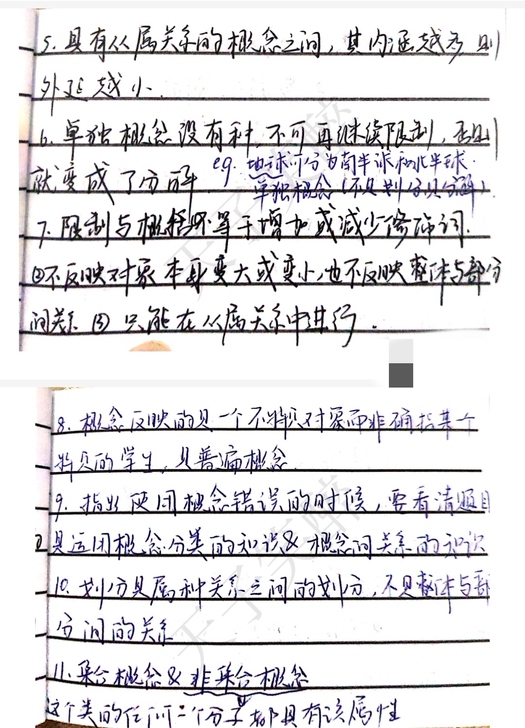 5. 具有从属关系的概念之间，其内涵越多则
外延越小.
6. 单独概念没有种，不可再继续限制，否则
就变成了分解
eg. 地球可分为南半球和北半球.
单独概念（不是划分是分解）.
7. 限制与概括不等于增加或减少修饰词.
②不反映对象本身变大或变小,也不反映整体与部分
间关系 ③ 只能在从属关系中进行.
8. 概念反映的是一个不特定对象而非确指某个
特定的学生，是普遍概念.
9. 指出使用概念错误的时候，要看清题目
是运用概念分类的知识&概念间关系的知识
10. 划分是属种关系之间的划分，不是整体与部
分间的关系
11. 集合概念&非集合概念
这个类的任何一个分子都具有该属性